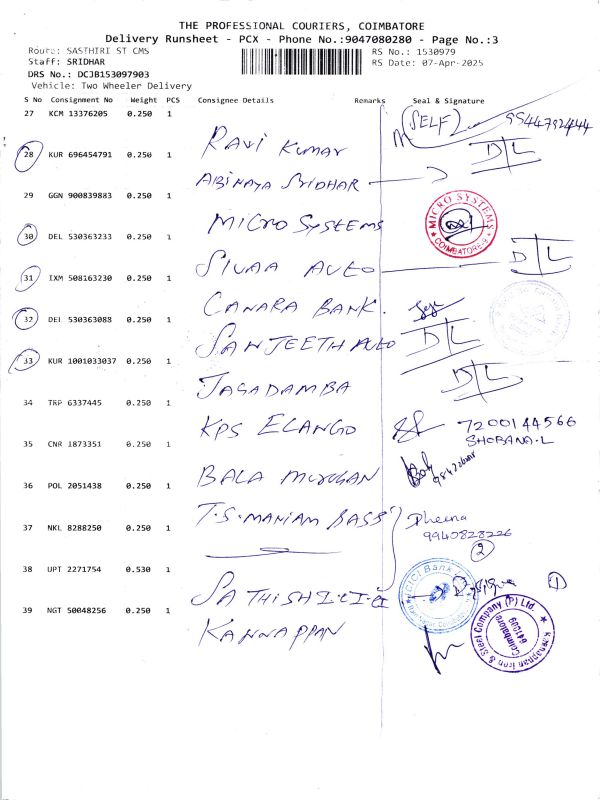 THE PROFESSIONAL COURIERS, COIMBATORE
Delivery Runsheet - PCX - Phone No.:9047080280 - Page No.:3
Route: SASTHIRI ST CMS
RS No.: 1530979
Staff: SRIDHAR
RS Date: 07-Apr-2025
DRS No.: DCJB153097903
Vehicle: Two Wheeler Delivery
S No Consignment No Weight PCS Consignee Details Remarks Seal & Signature
27 KCM 13376205 0.250 1
(SELF) 9944792444
RAVI KUMAR
28 KUR 696454791 0.250 1
D L
ABINAYA SRIDHAR
29 GGN 900839883 0.250 1
MICRO SYSTEMS
MICRO SYSTEMS COIMBATORE-9
30 DEL 530363233 0.250 1
SIVAA AUTO
D L
31 IXM 508163230 0.250 1
CANARA BANK.
32 DEL 530363088 0.250 1
SANJEETH AUTO
D L
33 KUR 1001033037 0.250 1
JAGADAMBA
D L
34 TRP 6337445 0.250 1
KPS ELANGO
7200144566
SHOBANA.L
35 CNR 1873351 0.250 1
BALA MURUGAN
36 POL 2051438 0.250 1
T.S.MANIAM BASS
37 NKL 8288250 0.250 1
Dheena
9940828226
2
38 UPT 2271754 0.530 1
SATHISH
ICICI Bank
1
39 NGT 50048256 0.250 1
KANNAPPAN
Kannappan Iron & Steel Company (P) Ltd.
Coimbatore
641009